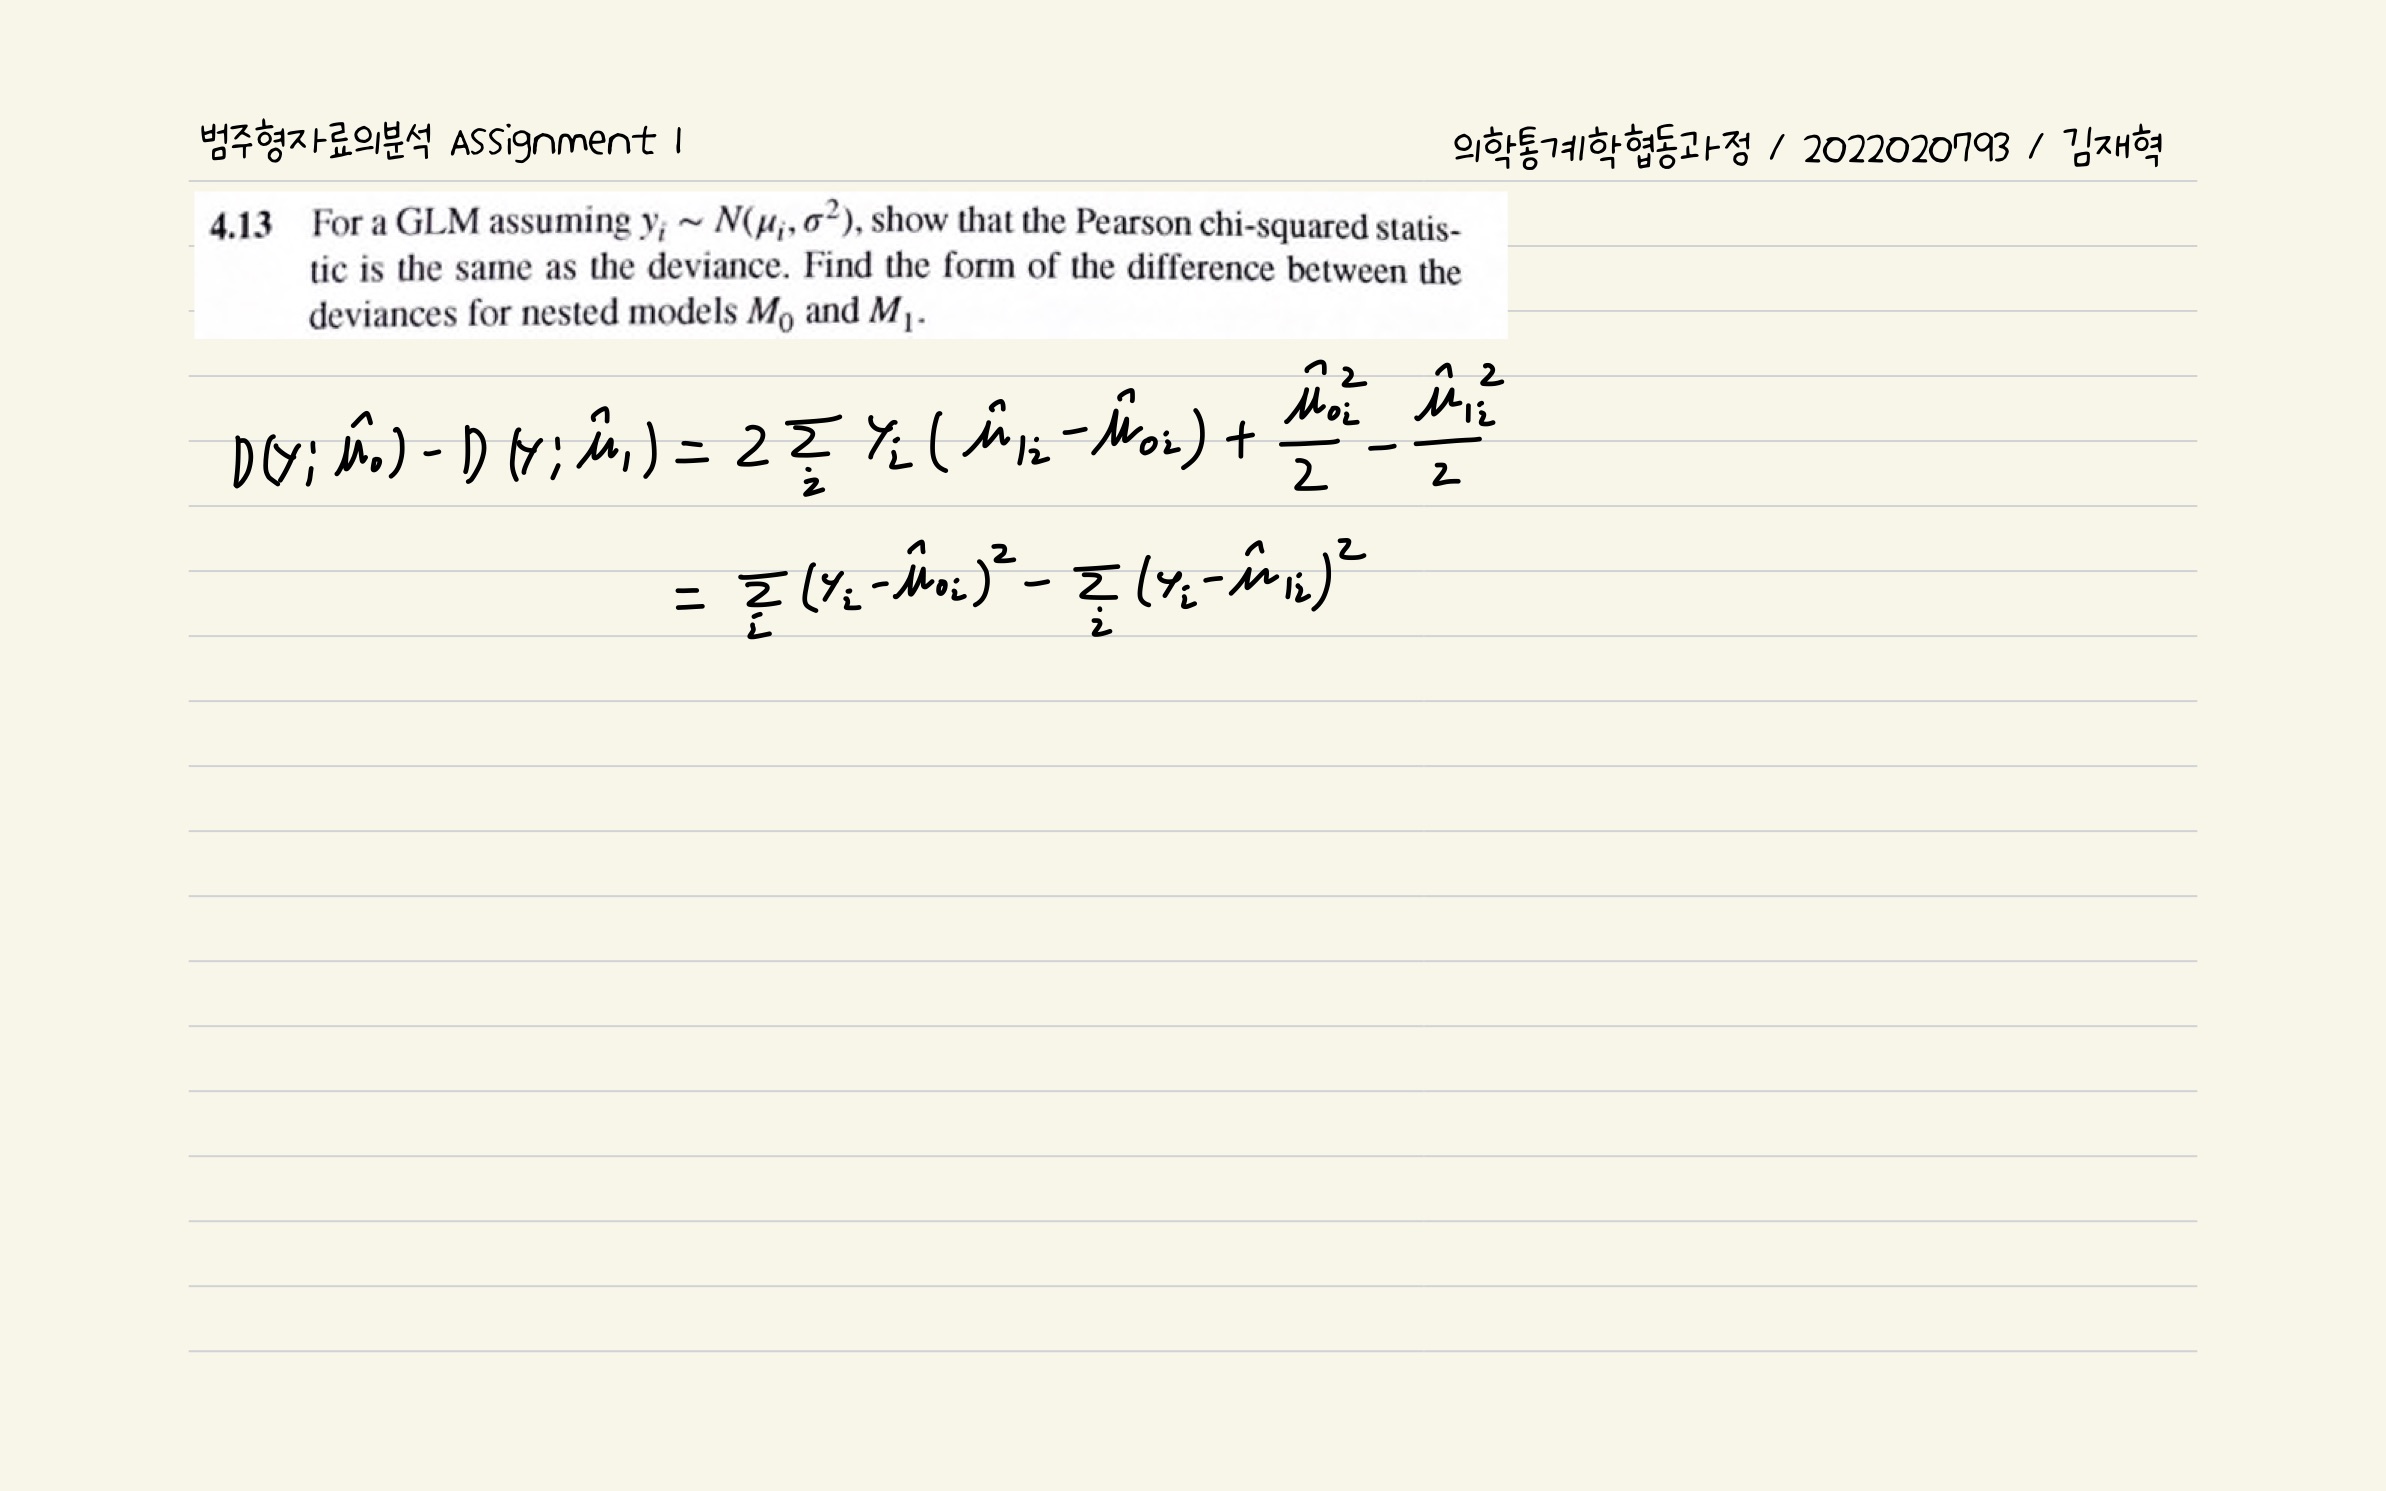 범주형자료의분석 Assignment 1
의학통계학협동과정 / 2022020793 / 김재혁
4.13 For a GLM assuming yᵢ ~ N(μᵢ, σ²), show that the Pearson chi-squared statis-
tic is the same as the deviance. Find the form of the difference between the
deviances for nested models M₀ and M₁.
D(y; μ̂₀) - D(y; μ̂₁) = 2 Σᵢ yᵢ(μ̂₁ᵢ - μ̂₀ᵢ) + μ̂₀ᵢ²/2 - μ̂₁ᵢ²/2
= Σᵢ (yᵢ - μ̂₀ᵢ)² - Σᵢ (yᵢ - μ̂₁ᵢ)²